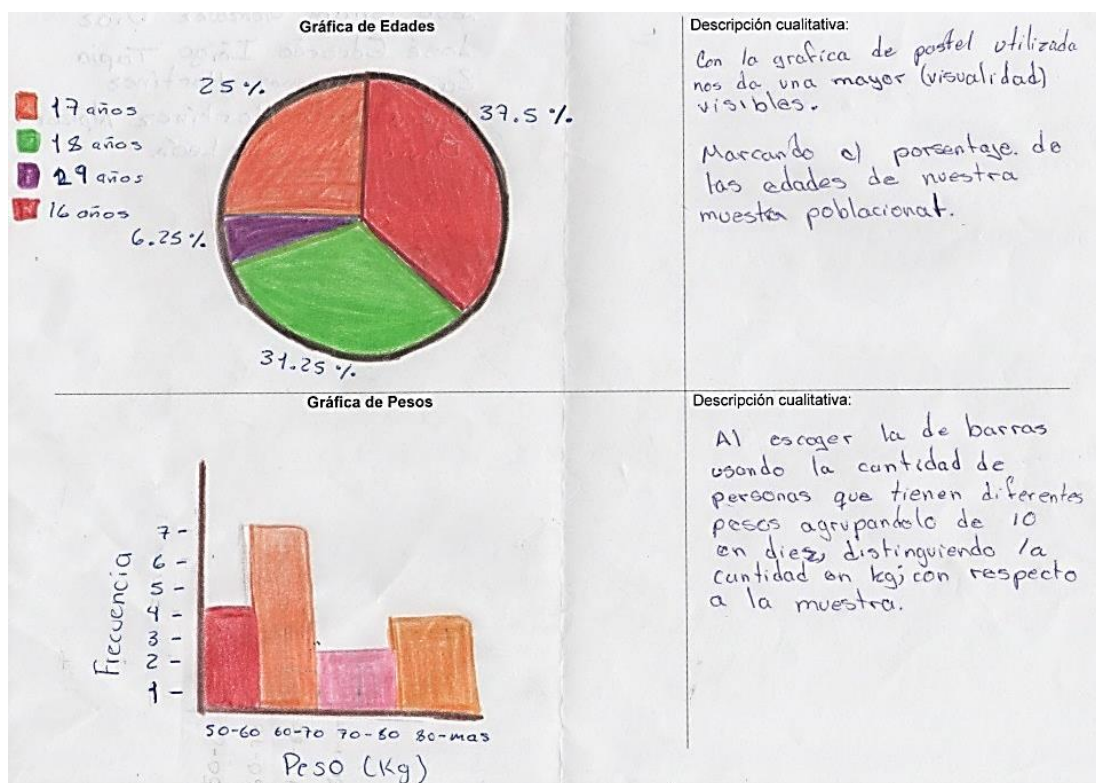 Gráfica de Edades
25 %
37.5 %
17 años
18 años
29 años
16 años
6.25 %
31.25 %
Descripción cualitativa:
Con la grafica de pastel utilizada
nos da una mayor (visualidad)
visibles.
Marcando el porsentaje. de
las edades de nuestra
muestra poblacional.
Gráfica de Pesos
Frecuencia
7 -
6 -
5 -
4 -
3 -
2 -
1 -
50-60 60-70 70-80 80-mas
Peso (Kg)
Descripción cualitativa:
Al escoger la de barras
usando la cantidad de
personas que tienen diferentes
pesos agrupandolo de 10
en diez, distinguiendo la
cantidad en kg; con respecto
a la muestra.